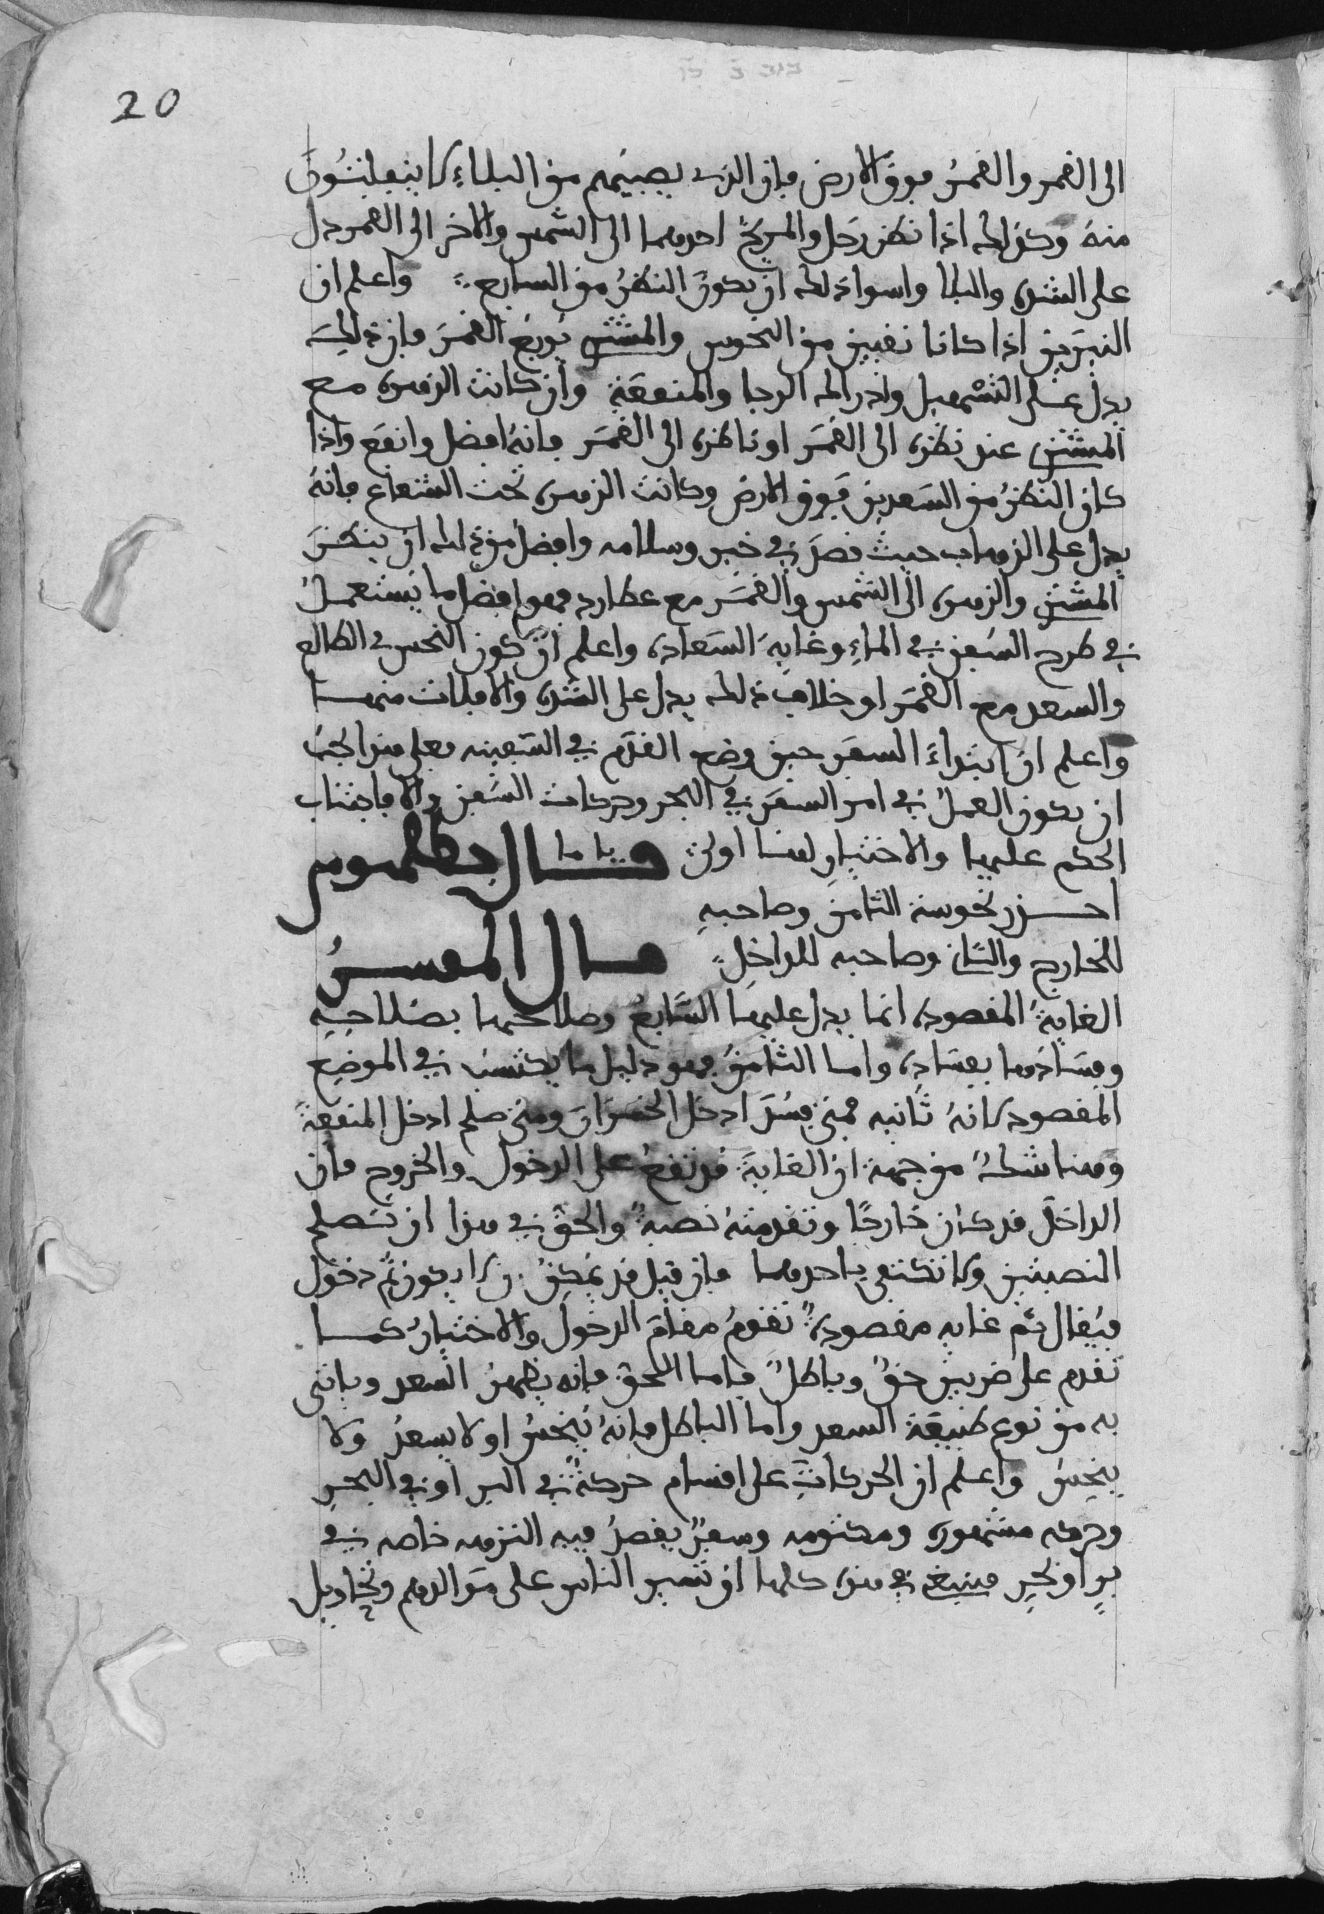 20
الى القمر والقمرُ فوق الارض فان الذى يصيبُهم من البلاءِ لا ينفلتُونَ
منهُ وكذلك اذا نظر زحل والمريخُ احدهما الى الشمس والاخر الى القمر دل
على الشدة والبلا واسوا ذلك ان يكونَ النظرُ من السابع واعلم ان
النيرين اذا كانا نقيين من النحوس والمشترى يُربعُ القمرَ فان ذلكَ
يدل على التسْهيل وادراك الرجا والمنفعة وان كانت الزهرة مع
المشترى عند نظره الى القمَر او ناظره الى القمَر فانهُ افضل وانفع واذا
كان النظرُ من السَعدين فوق الارض وكانت الزهرة تحت الشعاع فانهُ
يدل على الذهاب حيثُ قصدَ في خير وسلامه وافضل من ذلك ان ينظرَ
المشترى والزهرة الى الشمس والقمَر مع عطارد فهو افضل ما يستعملُ
في طرح السُفن في الماءِ وغايه السَعادة واعلم ان كون النحس في الطالع
والسعد مع القمَر او خلاف ذلك يدل على الشدة والافلات منهـا
واعلم ان ابتداءَ السفر حين وضع القدَم في السَفينه فعلى هذا يجبُ
ان يكون العملُ في امر السفَر في البحر وحركات السُفن والا فاجتناب
الحكم عليها والاختيار لهـا اولى قـال بطلميوس
احـذر نحوسة الثامن وصاحبهِ
للخارج والثانى وصاحبه للداخِل قـال المفسـرُ
الغايةُ المقصودة انما يدل عليها السَّابعُ وصلاحُها بصَلاحِهِ
وفسَادُها بفسَاده واما الثامنُ فهو دليل ما يكتسبُ في الموضِع
المقصود لانهُ ثانيه فمتى فسُدَ ادخل الخسرَانَ ومتى صلح ادخل المنفعةَ
وهنا شكٌ من جهة ان الغايةَ قد تقعُ على الدخول والخروج فان
الداخلَ قد كان خارجًا وتقدمتهُ نصبةٌ والحق في هذا ان تصلح
النصبتين ولا تكتفى باحدهما فان قيل قد يمكنُ ان لا يكون ثَمَّ دخول
فيُقال ثم غايه مقصودةٌ تقومُ مقامَ الدخول والاختيارُ كمـا
تقدم على ضربين حقٌ وباطلٌ فاما الحق فانه يظهرُ السعد وياتى
به من نوع طبيعة السعد واما الباطل فانهُ يُنحسُ او لا يسعدُ ولا
ينحِسُ واعلم ان الحركاتِ على اقسام حركةٌ في البر او في البحرِ
وحركه مشهورة ومكتومه وسفرٌ يقصدُ فيه النزهه خاصه في
برٍ او بحرٍ فينبغى في هذه كلها ان تسير الناس على مَوالدهم وتحاويل